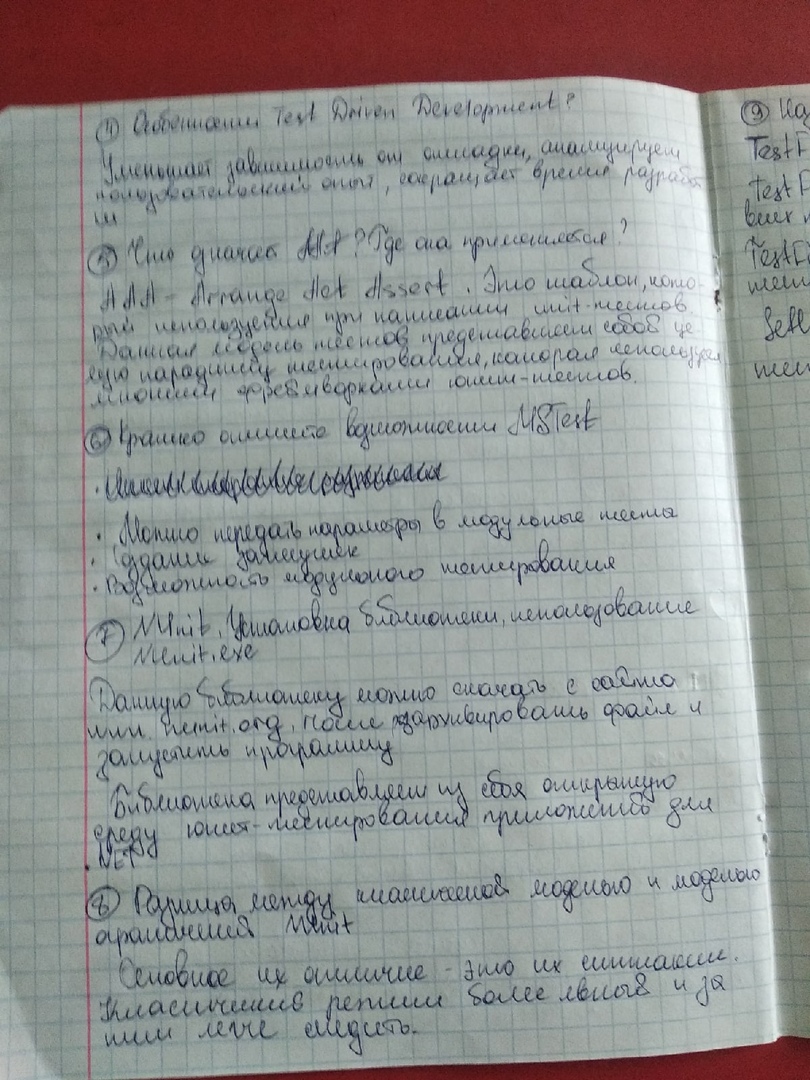 4) Особенности Test Driven Development?
Уменьшает зависимость от отладки, анализируем
пользовательский опыт, сокращает время разработ
ки
5) Что значит AAA? Где она применяется?
AAA - Arrange Act Assert. Это шаблон, кото-
рый используется при написании unit-тестов.
Данная модель тестов представляет собой це-
лую парадигму тестирования, которая используется
многими фреймворками юнит-тестов.
6) Кратко опишите возможности MSTest
· Можно передать параметры в модульные тесты
· Создание заглушек
· Возможность модульного тестирования
7) NUnit. Установка библиотеки, использование
NUnit.exe
Данную библиотеку можно скачать с сайта
nunit.org, после разархивировать файл и
запустить программу
Библиотека представляет из себя открытую
среду юнит-тестирования приложений для
.NET
8) Разница между классической моделью и моделью
ограничений NUnit
Основное их отличие - это их синтаксис.
Классический режим более явный и за
ним легче следить.
9)
TestF
TestF
всех
TestFi